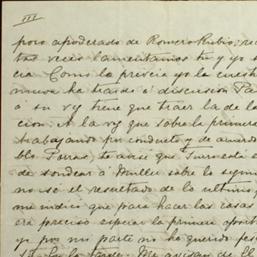 III
poso apoderado de Romero Rubio; re
tas veces lamentamos tu y yo s
cia. Como lo previa yo la cuest
nueva ha traido á discusion Pa
á su vez tiene que traer la de la
cion. A la vez que sobre la primera
trabajando por conducto y de acuerdo
blo Farras, te avisé que
de sondear á Muller sobre la segun
no sé el resultado de la ultima,
me indicó que para hacer las cosas
era preciso esperar la primera
y por mi parte no he querido pes